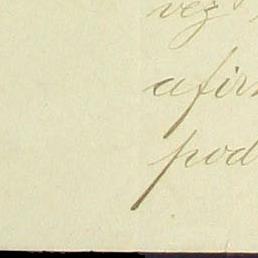 vez
afir
pod